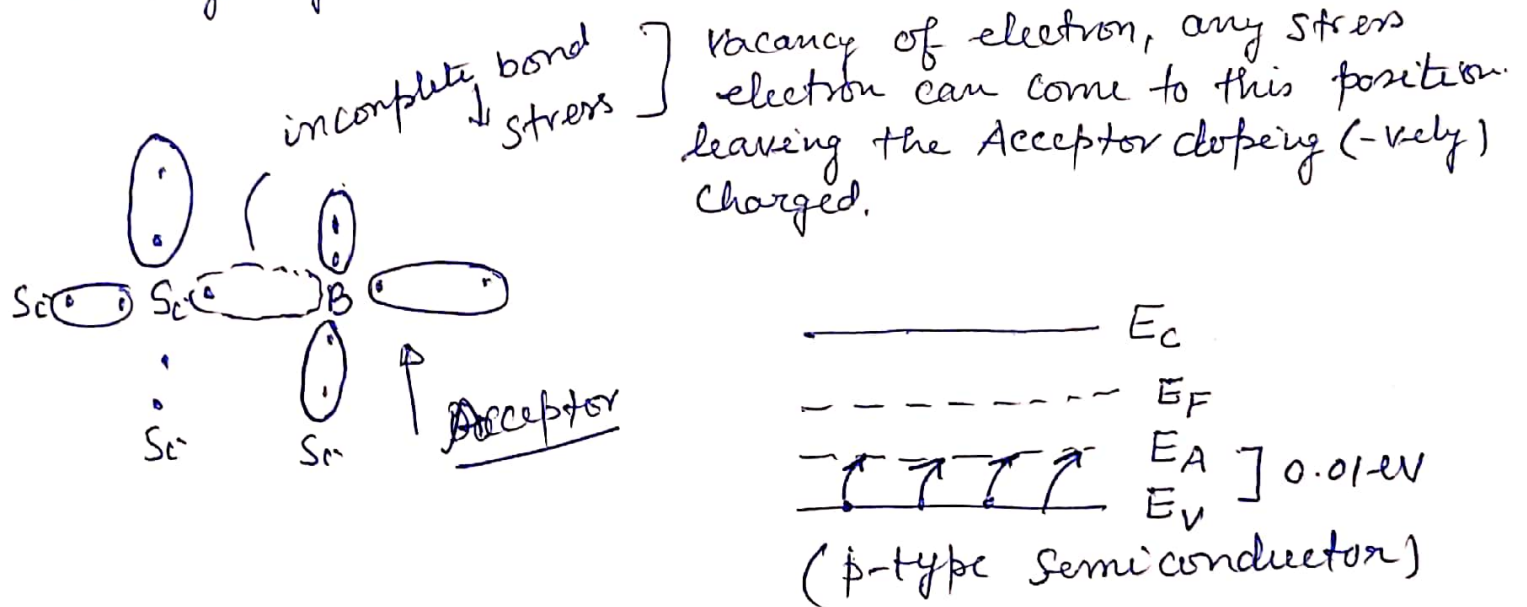 incomplete bond
↓ stress
] Vacancy of electron, any stress
electron can come to this position
leaving the Acceptor doping (-vely)
Charged.
Si Si B
Acceptor
Si Si
E_C
E_F
E_A ] 0.01-eV
E_V
(p-type Semiconductor)